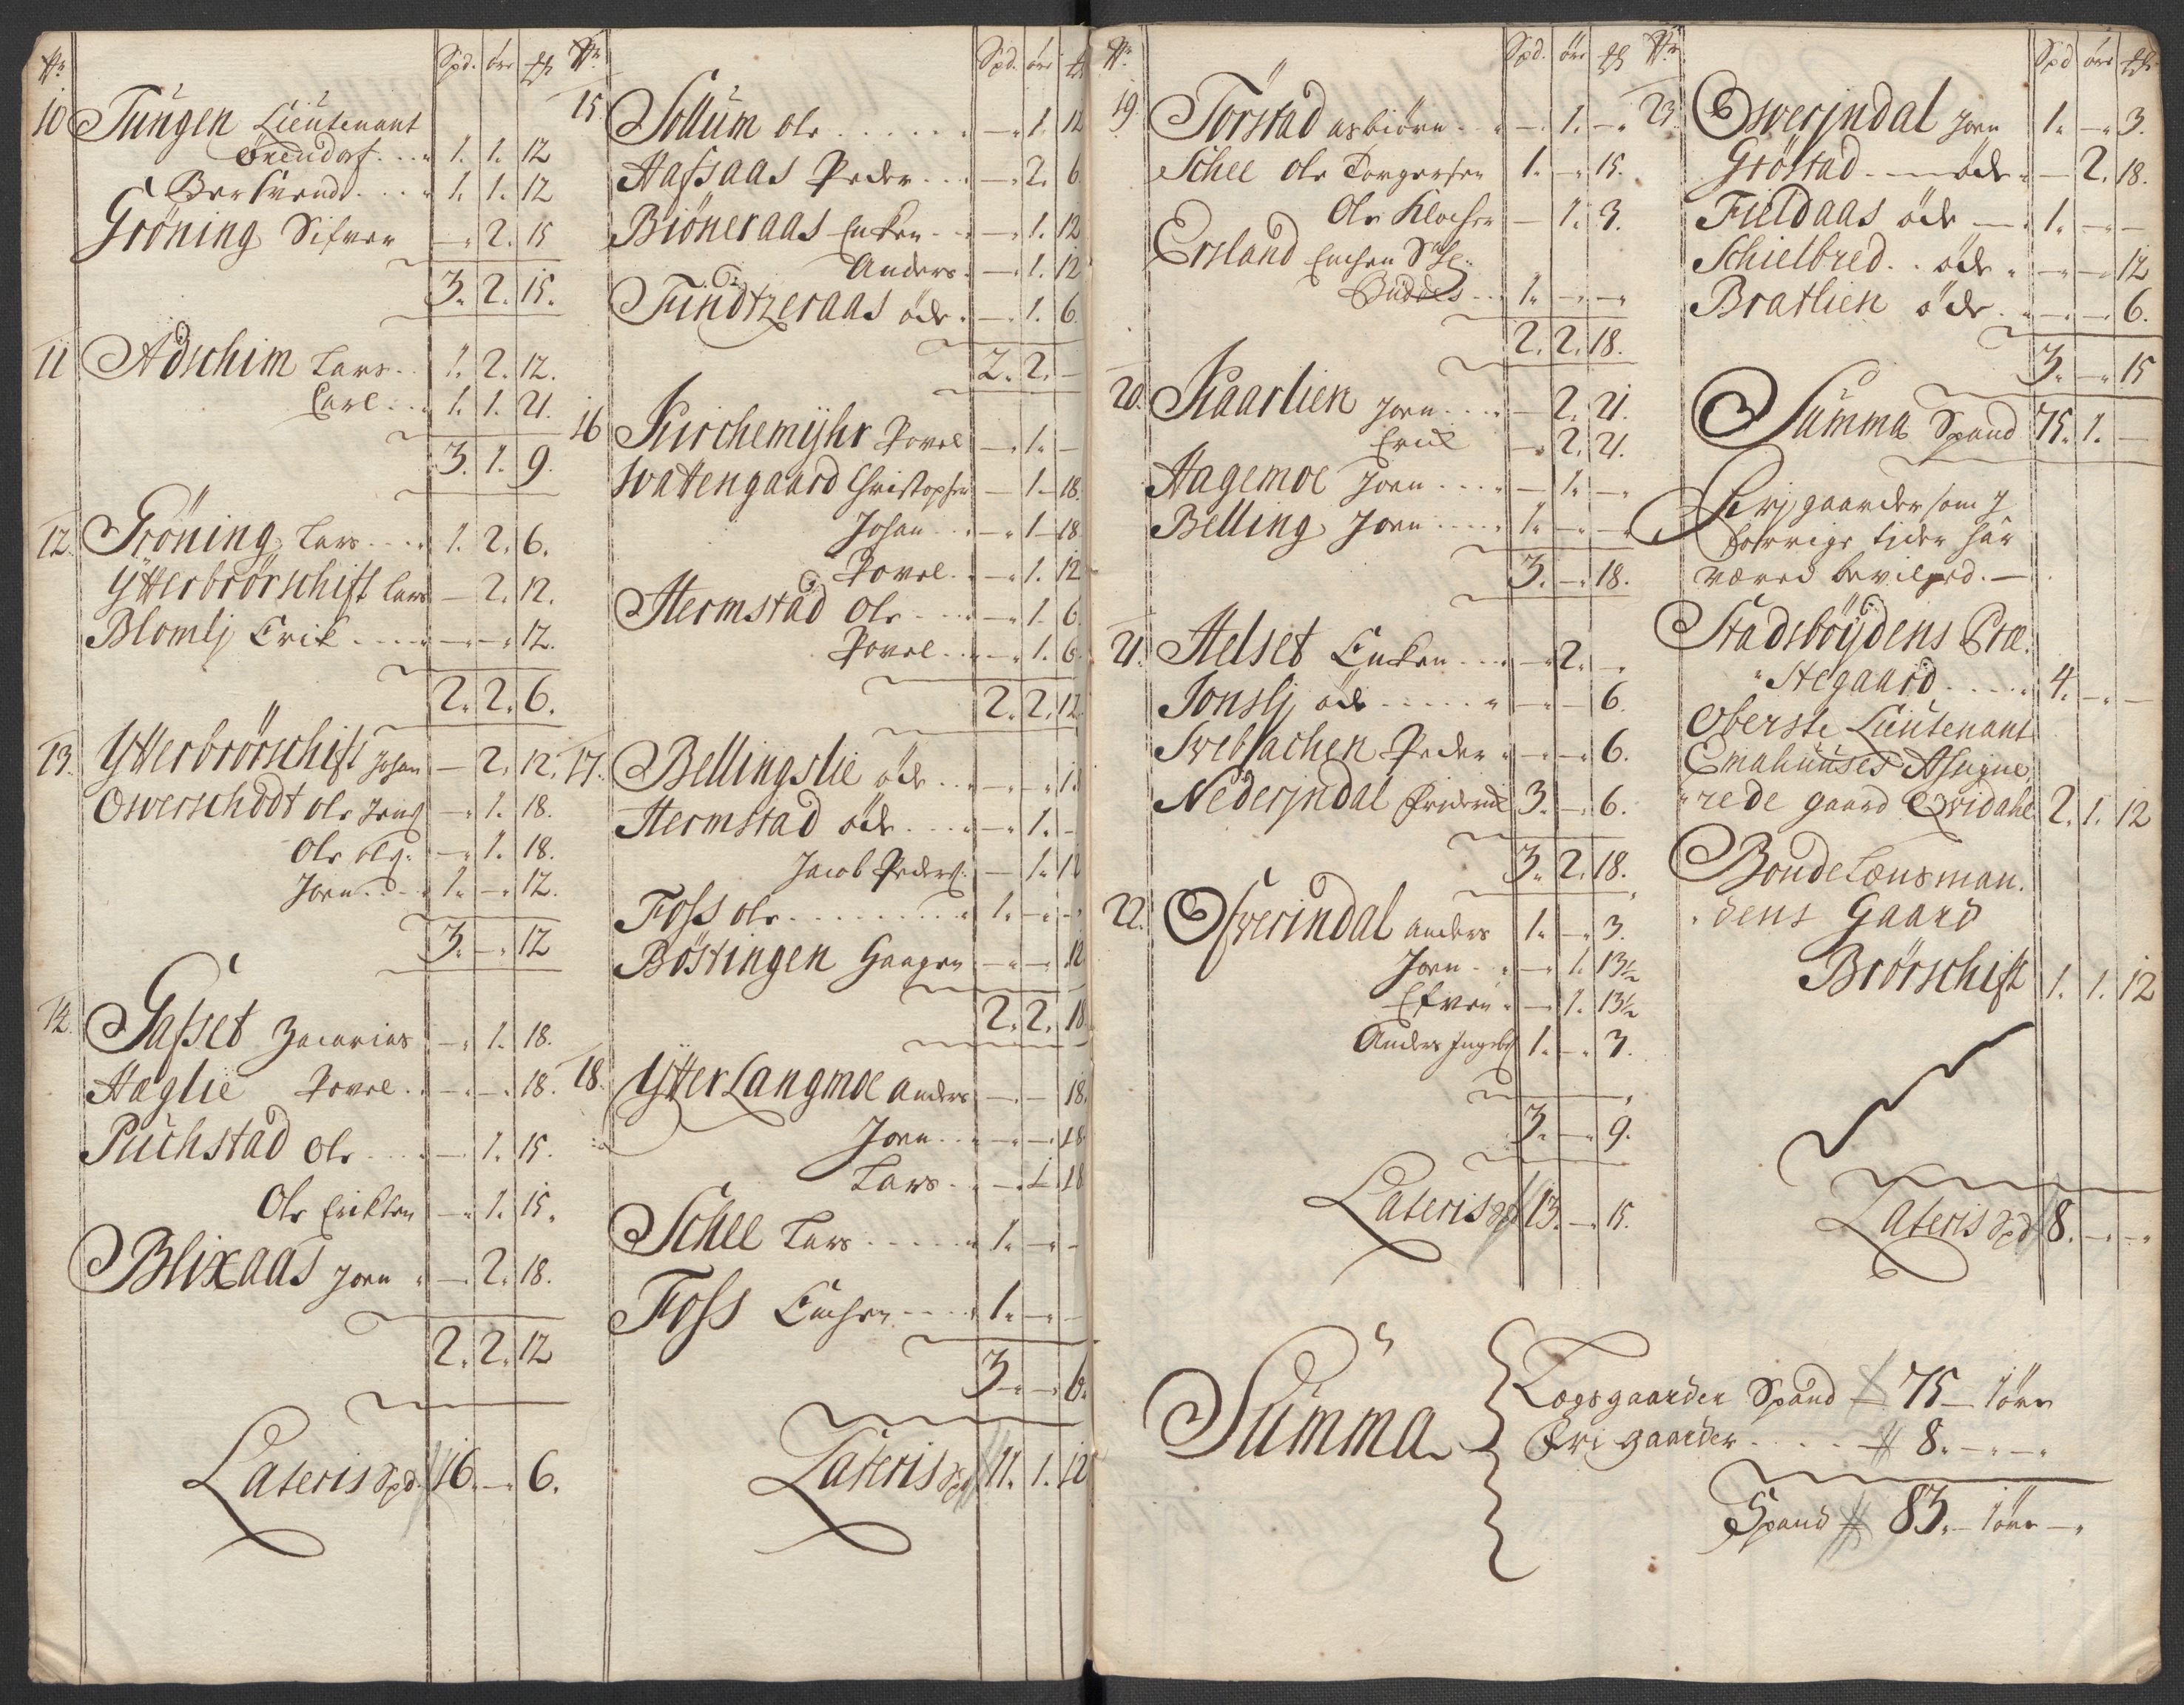 No Spd. öre ₰
10 Tüngen Lieutenant
Örendorf . . . 1. 1. 12
Bersvend . . . 1. 1. 12
Gröning Sifver — 2. 15
3. 2. 15.
11 Adschim Lars . . 1. 2. 12.
Carl . . 1. 1. 21.
3. 1. 9.
12. Gröning Lars . . . 1. 2. 6.
Ÿtterbrörschift Lars — 2. 12.
Blomlj Erik . . . . — — 12.
2. 2. 6.
13. Ÿtterbrörschift Johan — 2. 12.
Owerschodt Ole Jens — 1. 18.
Ole OlS: — 1. 18.
Joen . . . . 1. — 12.
3. — 12
14. Gafset Zacarias — 1. 18.
Haglie Povel . . — — 18.
Puchstad Ole . . . — 1. 15.
Ole Erichsen — 1. 15.
Blixaas Joen — 2. 18.
2. 2. 12
Lateris Spd. 16. — 6.
No Spd. öre ₰
15 Sollüm Ole . . . . . . — 1. 12
Hafsaas Peder . . . — 2. 6
Biöneraas Encken . . — 1. 12
Anders . — 1. 12
Tündtzeraas öde . — 1. 6.
2. 2. —
16 Kirchemijhr Povel — 1. —
Wattengaard Christopher — 1 — 18.
Johan . . . — 1 — 18
Povel . . — 1. 12
Hermstad Ole . . . . — 1. 6
Povel . . — 1. 6.
2. 2. 12
17. Bellingslie öde . . . — — 18
Hermstad öde . . . . — 1. —
Jacob Peders: — 1. 12
Foss Ole . . . . . . . . 1. — —
Böstingen Haagen — — 12
2. 2. 18
18. Ÿtter Langmoe Anders — — 18.
Joen . . . — — 18
Lars . . — 1 18
Schee Lars . . . . . . 1. — —
Foss Enchen . . . . 1. — —
3. — 6.
Lateris Spd 11. 1. 12
No Spd. öre ₰
19. Torstad asbiörn . . — 1. —
Schee Ole Torgersen 1. — 15.
Ole Klocher — 1. 3.
Ersland Enchen Sal:
Buddes . . 1. — —
2. 2. 18.
20. Kaarlien Joen . . . — 2. 21.
Erick — 2. 21.
Hagemoe Joen . . . . — 1. —
Belling Joen . . . . 1. — —
3. — 18.
21. Helset Encken . . . — 2. —
Jonslj öde . . . . . — — 6.
Swebachen Peder — — 6.
Nederjndal Friderick 3. — 6.
3. 2. 18.
22. Ofwerindal anders 1. — 3.
Joen . . — 1. 13½
Efven . — 1. 13½
Anders Ingebr 1. — 3.
3. — 9.
Lateris Spd 13. — 15.
No Spd öre ₰
23. Owerjndal Joen 1. — 3.
Gröstad . — öde — 2. 18.
Fieldaas öde — 1. — —
Schielbred . . öde — — 12
Bratlien öde . . — — 6.
3. — 15
Summa Spand 75. 1. —
Frj gaarder som J
forrige tider har
været bevilged. —
Stadsböÿdens Præ:
stegaard . . . . . 4. — —
Oberste Lieutenant
Emahuuses Assigne:
rede gaard Qvidahl 2. 1. 12
Bonde Lænsman:
dens Gaard
Brörschift 1. 1. 12
Lateris Spd 8. — —
Summa
Lægsgaarder Spand 75 — 1 öre
Fri gaarder . . . . 8. — —
Spand 83. — 1 öre —